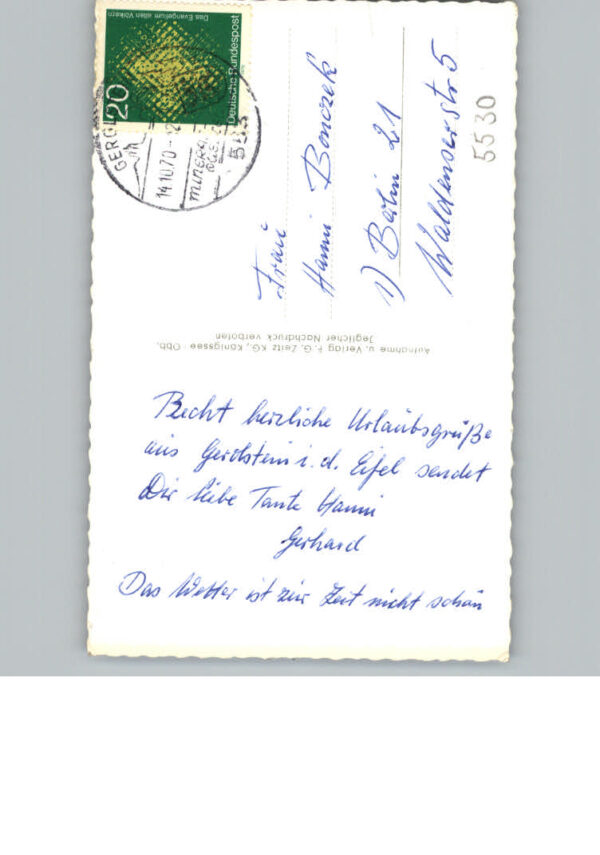 Das Evangelium allen Völkern
Deutsche Bundespost
20
GEROL
14.10.70-12
553
Frau
Hanni Bonczek
1) Berlin 21
Waldenserstr 5
5530
Aufnahme u. Verlag F. G. Zeitz KG., Königssee / Obb.
Jeglicher Nachdruck verboten
Recht herzliche Urlaubsgrüße
aus Gerolstein i. d. Eifel sendet
Dir liebe Tante Hanni
Gerhard
Das Wetter ist zur Zeit nicht schön